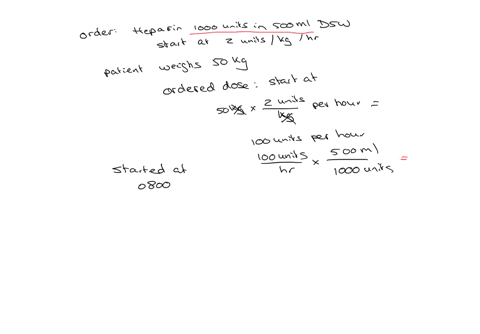 order: Heparin 1000 units in 500 ml D5W
start at 2 units/kg/hr
patient weighs 50 kg
ordered dose: start at
50 kg × 2 units / kg per hour =
100 units per hour
100 units / hr × 500 ml / 1000 units =
started at
0800